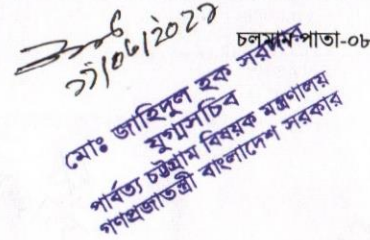 চলমান পাতা-০৮
মোঃ জাহিদুল হক সরদার
যুগ্মসচিব
পার্বত্য চট্টগ্রাম বিষয়ক মন্ত্রণালয়
গণপ্রজাতন্ত্রী বাংলাদেশ সরকার